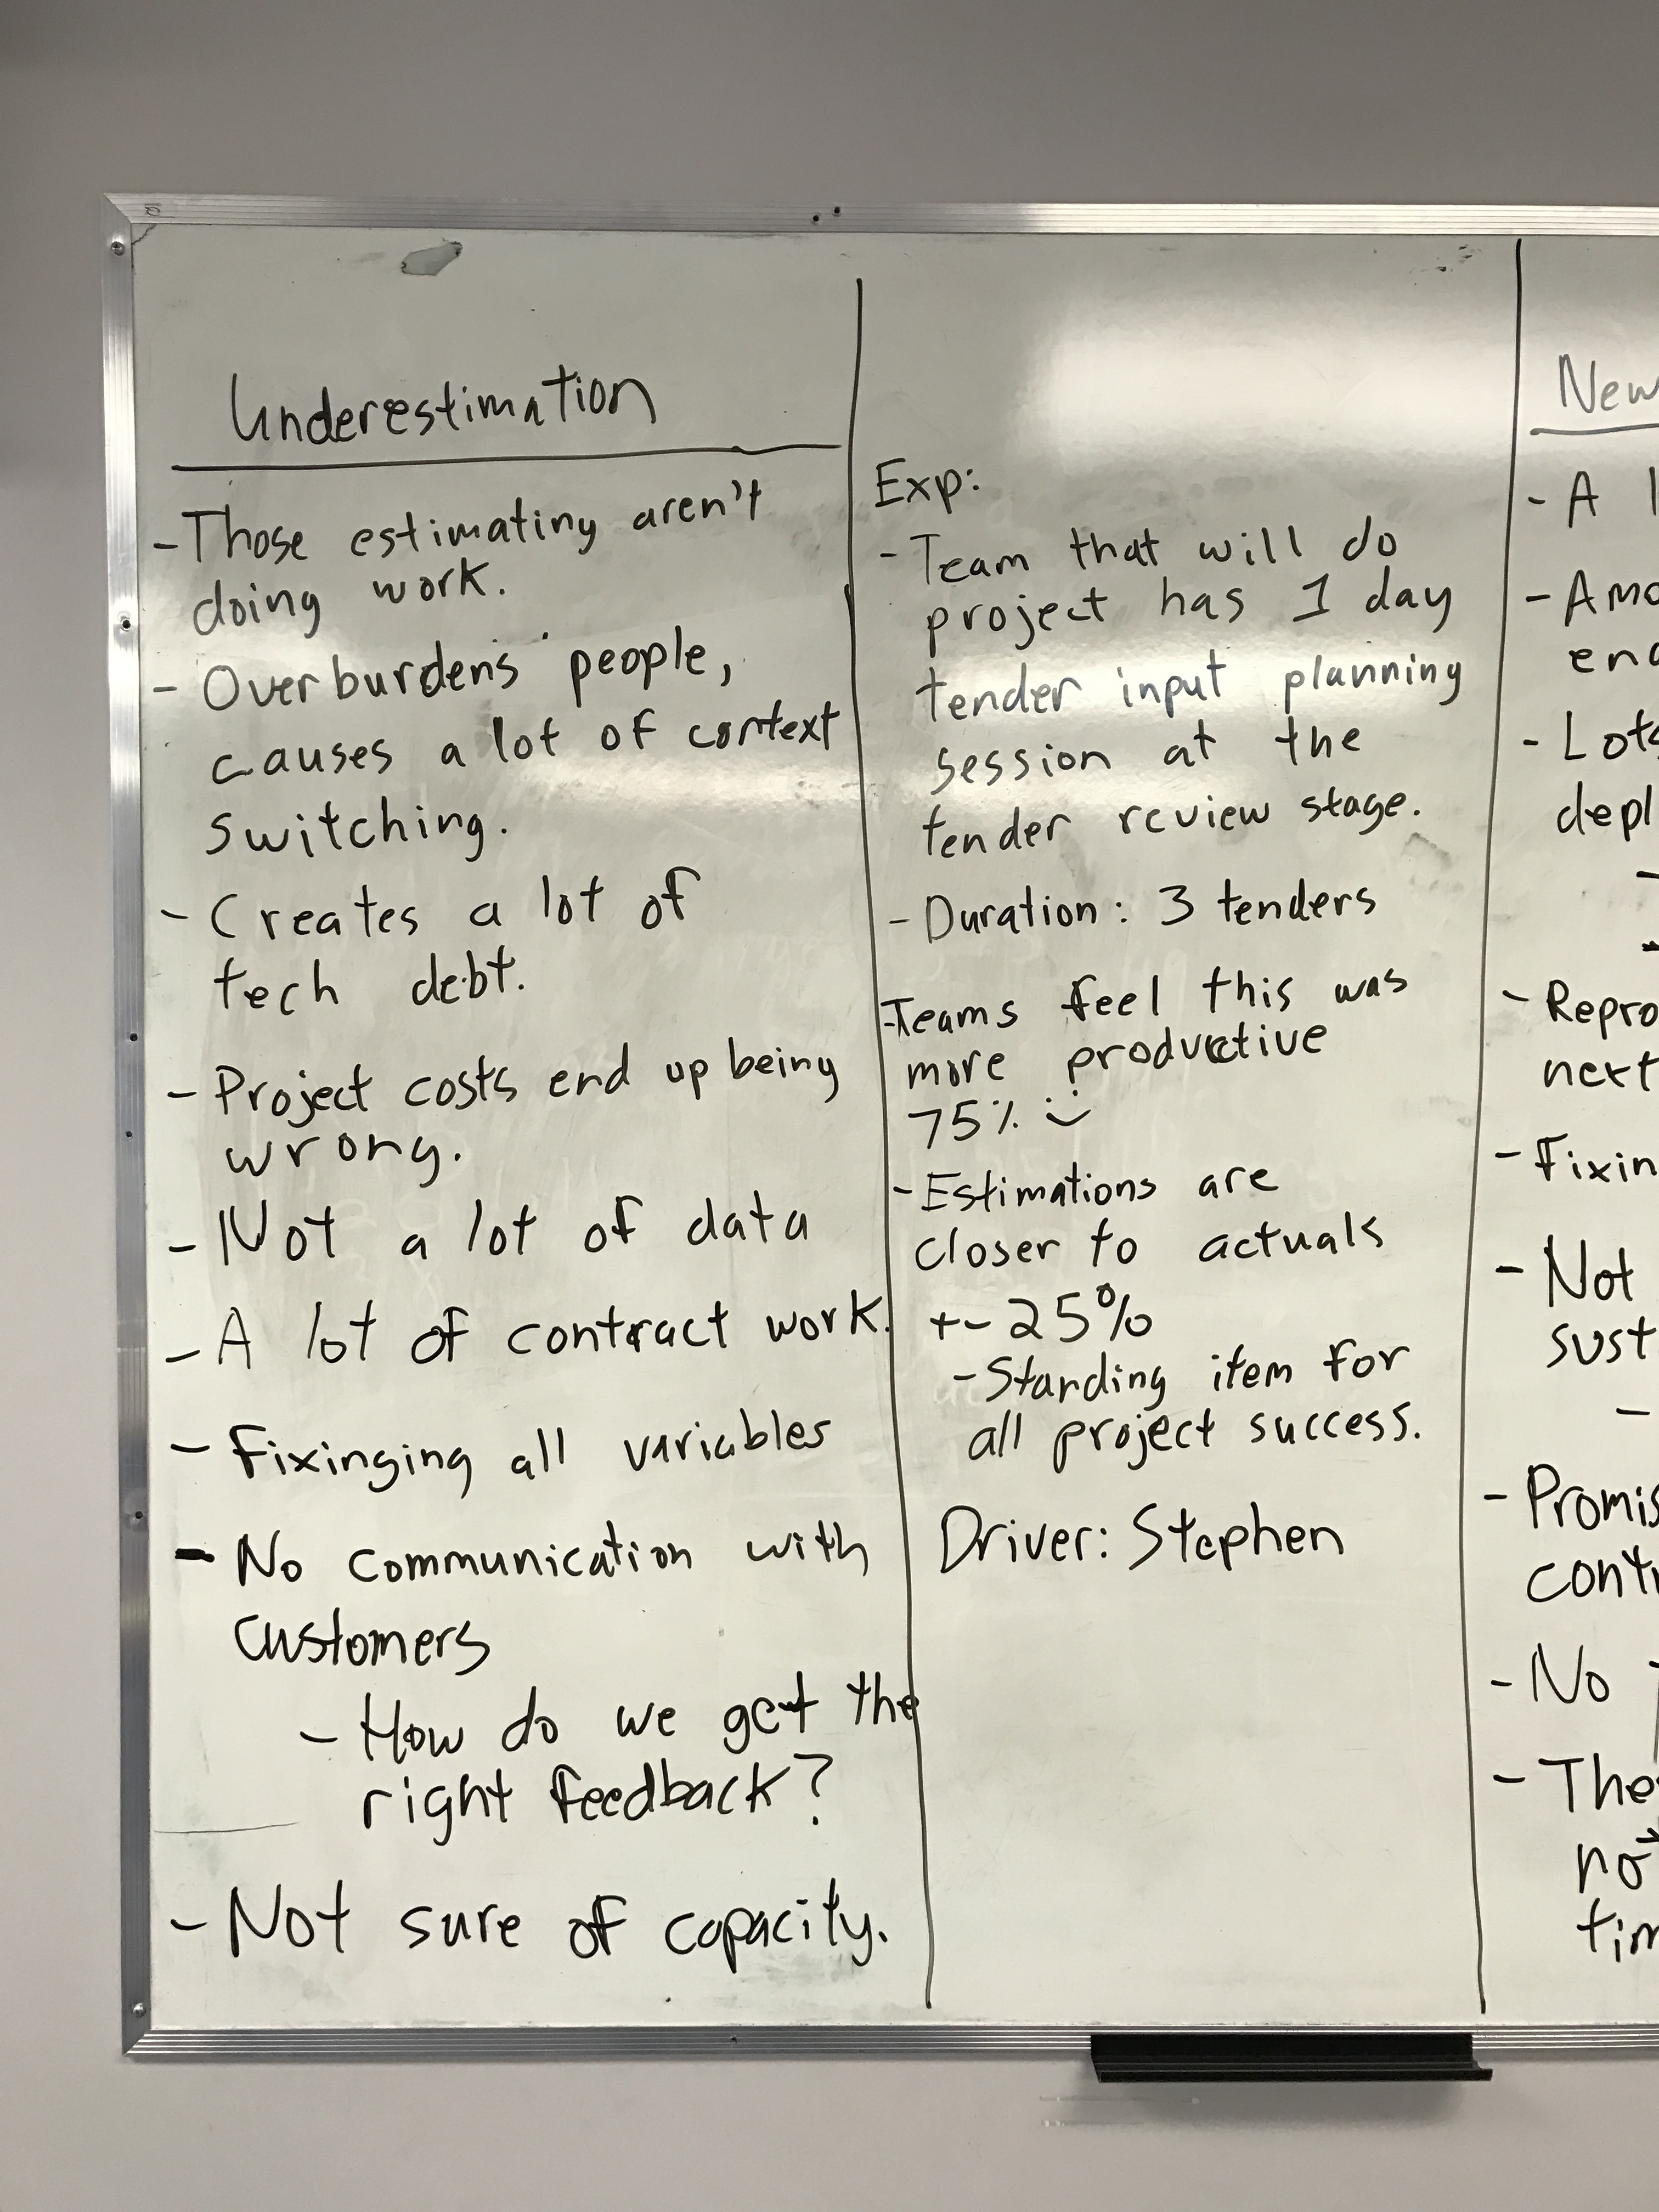 Underestimation
- Those estimating aren't
doing work.
- Overburdens people,
causes a lot of context
switching.
- Creates a lot of
tech debt.
- Project costs end up being
wrong.
- Not a lot of data
- A lot of contract work.
- Fixinging all variables
- No communication with
customers
- How do we get the
right feedback?
- Not sure of capacity.
Exp:
- Team that will do
project has 1 day
tender input planning
session at the
tender review stage.
- Duration: 3 tenders
- Teams feel this was
more productive
75% :)
- Estimations are
closer to actuals
+- 25%
- Standing item for
all project success.
Driver: Stephen
New
- A
- Amo
- Lots
depl
-
-
- Repro
next
- Fixin
- Not
sust
-
- Promis
cont
- No
- The
not
tim